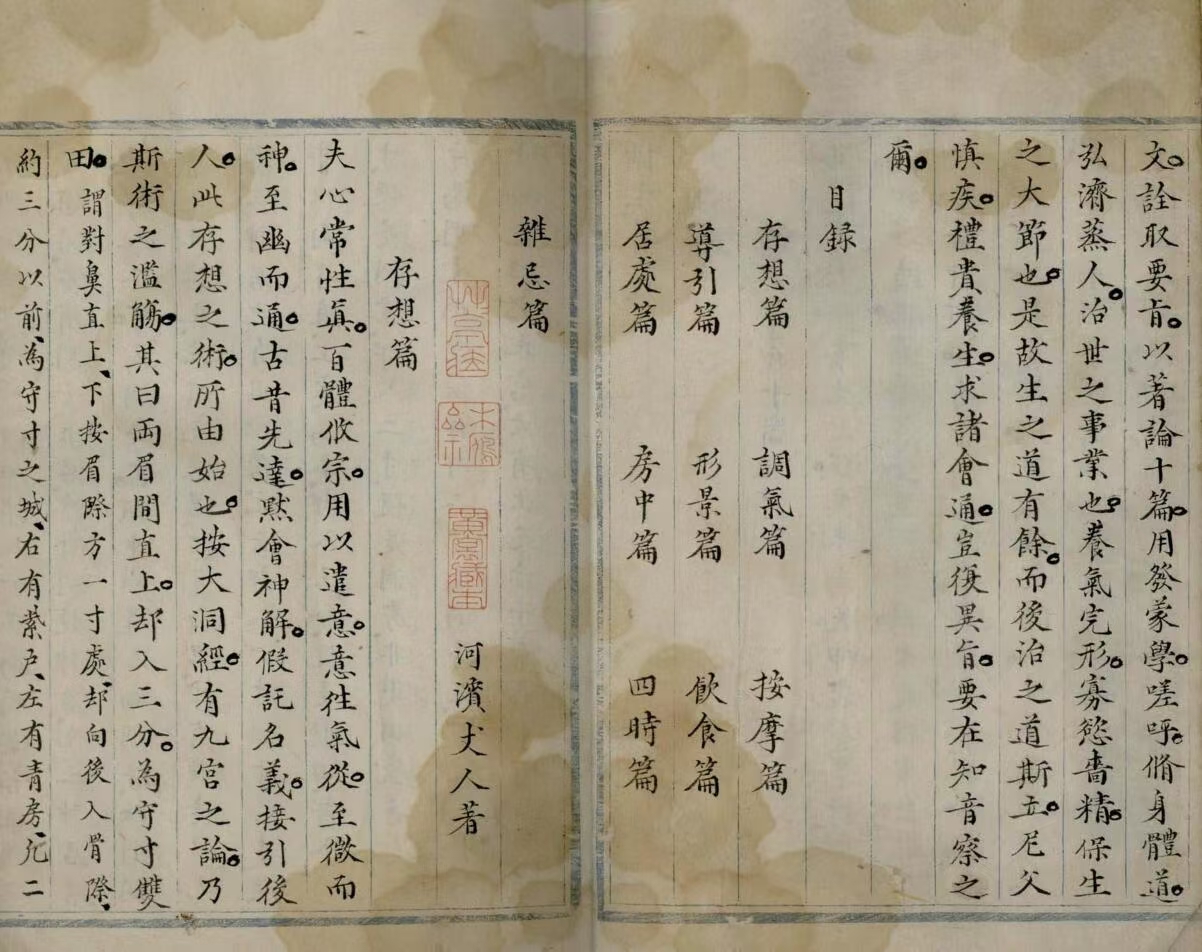 文。詮取要旨。以著論十篇。用發蒙學。嗟呼。脩身體道。
弘濟蒸人。治世之事業也。養氣完形。寡慾嗇精。保生
之大節也。是故生之道有餘。而後治之道斯立。尼父
慎疾。禮貴養生。求諸會通。豈復異旨。要在知音察之
爾。
目録
存想篇 調氣篇 按摩篇
導引篇 形景篇 飲食篇
居處篇 房中篇 四時篇
雜忌篇
河濱丈人著
存想篇
夫心常性真。百體攸宗。用以遣意。意往氣從。至微而
神。至幽而通。古昔先達。默會神解。假託名義。接引後
人。此存想之術。所由始也。按大洞經。有九宮之論。乃
斯術之濫觴。其曰兩眉間直上。却入三分。為守寸雙
田。謂對鼻直上、下按眉際方一寸處、却向後入骨際、
約三分以前、為守寸之城、右有紫戶、左有青房、凡二